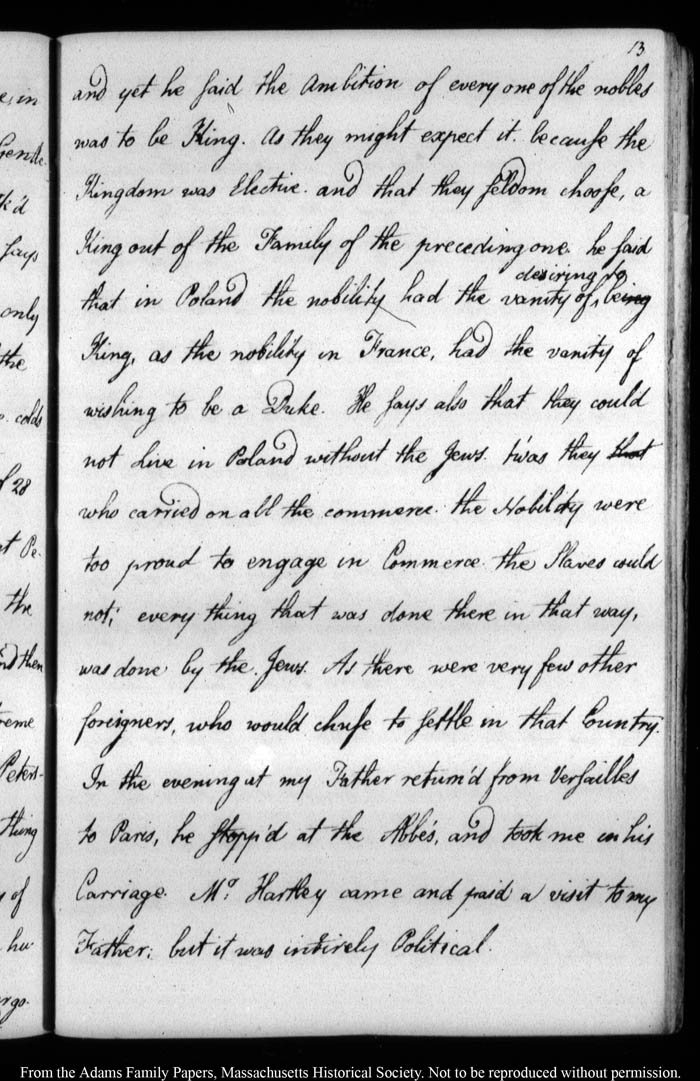 13
and yet he said the ambition of every one of the nobles
was to be King. as they might expect it. because the
Kingdom was Elective. and that they seldom choose, a
King out of the Family of the preceding one. he said
desiring to
that in Poland the nobility had the vanity of, being
King, as the nobility in France, had the vanity of
wishing to be a Duke. He says also that they could
not live in Poland without the Jews. t'was they that
who carried on all the commerce. the Nobility were
too proud to engage in Commerce. the Slaves could
not; every thing that was done there in that way,
was done by the Jews. As there were very few other
foreigners, who would chuse to settle in that Country.
In the evening at my Father return'd from Versailles
to Paris, he stopp'd at the Abbés, and took me in his
Carriage. Mr. Hartley came and paid a visit to my
Father; but it was intirely Political.
e, in
Gentle
k'd
says
only
the
colds
of 28
at Pe-
the
and then
treme
Peters-
thing
of
hu
rgo.
From the Adams Family Papers, Massachusetts Historical Society. Not to be reproduced without permission.